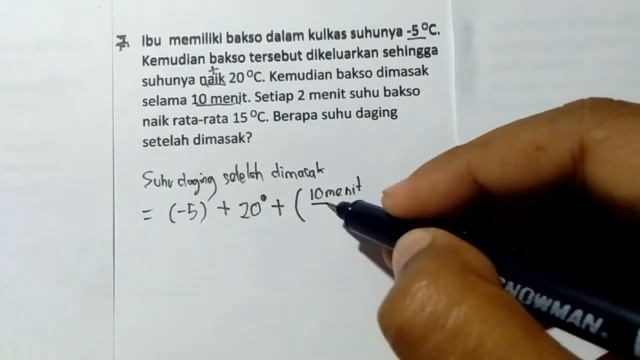 7. Ibu memiliki bakso dalam kulkas suhunya -5 °C.
Kemudian bakso tersebut dikeluarkan sehingga
+
suhunya naik 20 °C. Kemudian bakso dimasak
selama 10 menit. Setiap 2 menit suhu bakso
naik rata-rata 15 °C. Berapa suhu daging
setelah dimasak?
Suhu daging setelah dimasak
= (-5) + 20° + ( 10 menit
SNOWMAN.